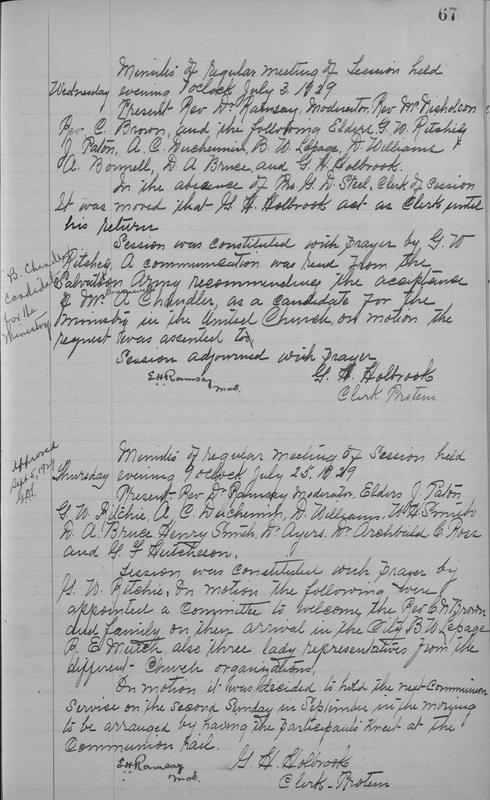 67
Minutes of regular meeting of Session held
Wednesday evening 7 oclock July 3. 1929
Present Rev Dr Ramsay, Moderator, Rev Mr Nicholson
Rev. C. Brown, and the following Elders G. W. Ritchie,
J. Paton, A. C. Duchemin, B. W. Lepage, D. Williams
A. Bonnell, D A Bruce, and G. H. Holbrook.
In the absence of G. D. Steel, Clerk of Session
It was moved that G. H. Holbrook act as Clerk until
his return
Session was constituted with prayer by G. W
Ritchie, A communication was read from the
Salvation Army recommending the acceptance
of Mr. A Chandler, as a candidate for the
Ministry in the United Church, on motion the
request was assented to,
Session adjourned with prayer
B. Chandler
Candidate
for the
Ministry
E H Ramsay
Mod.
G. H. Holbrook
Clerk Protem
Approved
Sept 5, 1929
Minutes of regular meeting of Session held
Thursday evening 7 oclock July 25, 1929
Present Rev Dr Ramsay Moderator, Elders J. Paton
G. W. Ritchie, A, C. Duchemin, D. Williams, W H Smith
D. A. Bruce Henry Smith Dr Ayers, Dr. Archbild C. Ross
and G. F Hutcheson,
Session was constituted with prayer by
G. W. Ritchie, On motion the following were
appointed a Committee to welcome the Rev C. N Brown
and family on their arrival in the City B. W. Lepage
R. E Mutch, also three lady representatives from the
different Church organizations,
On motion it was decided to hold the next Communion
Service on the second Sunday in September in the morning
to be arranged by having the participants kneel at the
Communion rail.
E H Ramsay
Mod.
G. H. Holbrook
Clerk - Protem